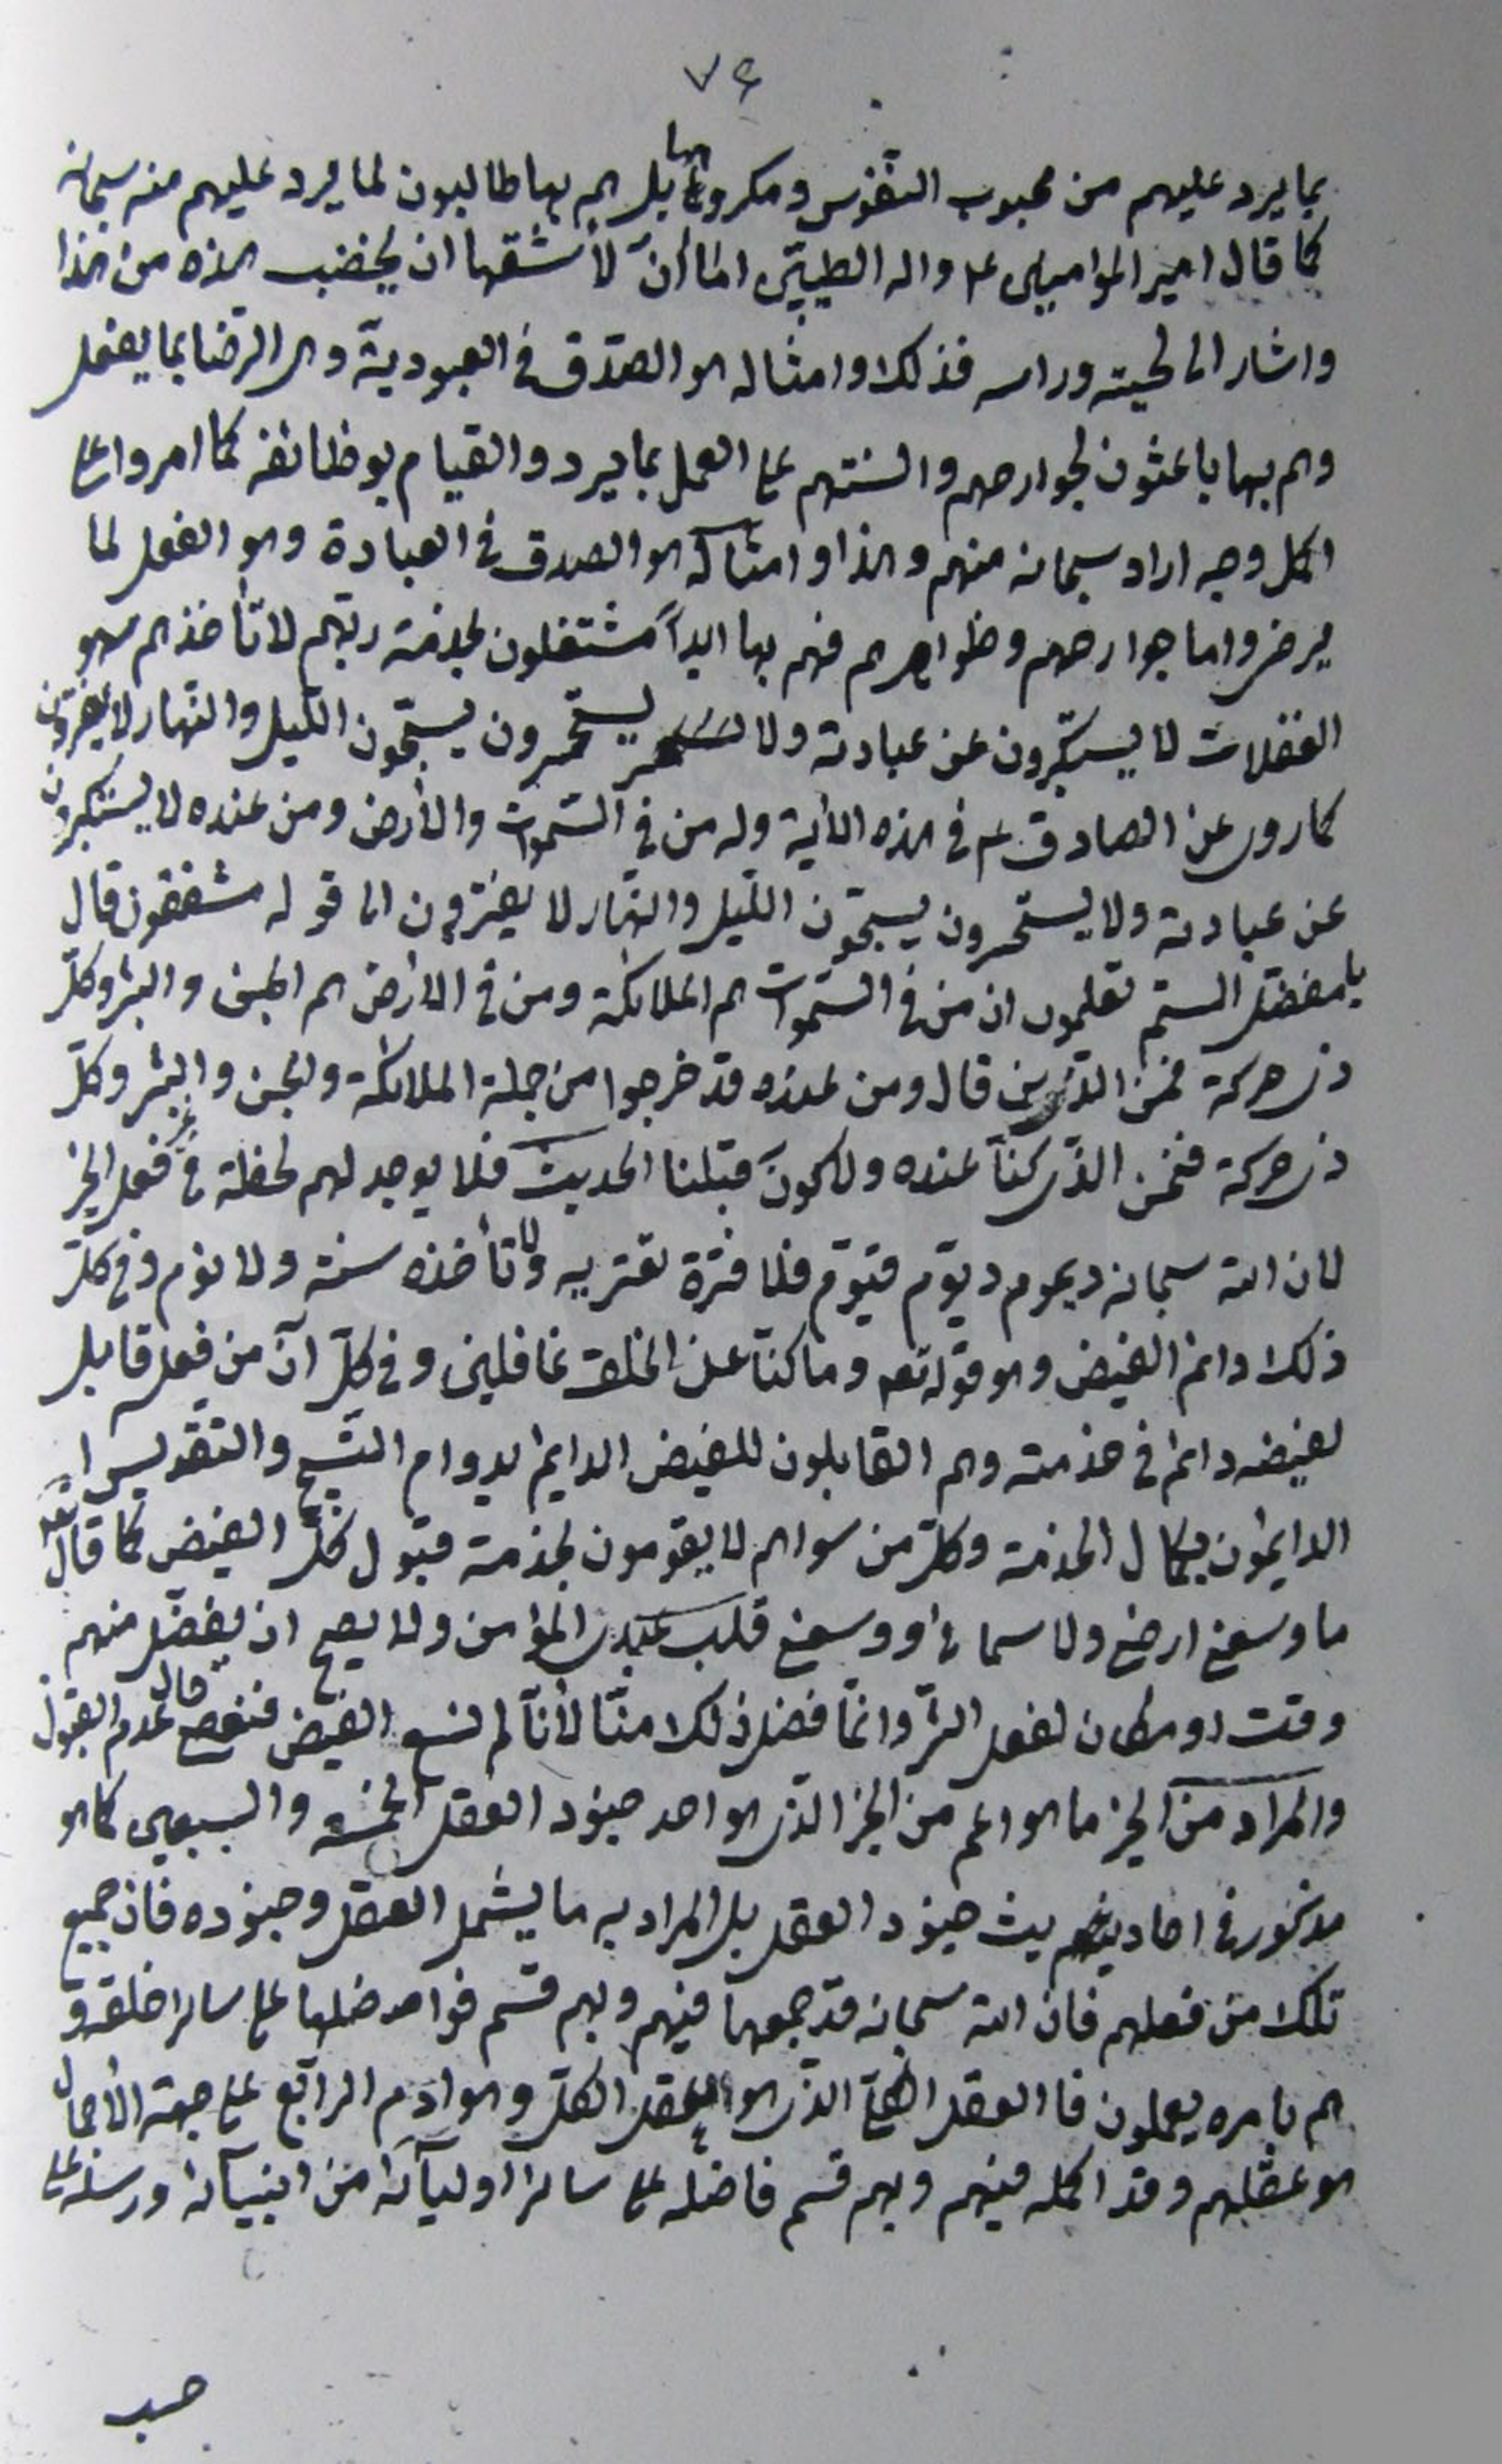 ٧٤
بما يرد عليهم من محبوب النفوس ومكروهها بل هم بها طالبون لما يرد عليهم منه سبحانه
كما قال امير المؤامنين ع واله الطيبين اما ان لأشقها ان يخضب هذه من هذا
واشار الى لحيته وراسه فذلك وامثاله هو الصّدق في العبوديّة وهى الرضا بما يفعل
وهم بها باعثون لجوارحهم والسنتهم على العمل بما يرد والقيام بوظائفه كما امروا على
اكمل وجه اراد سبحانه منهم وهذا وامثاله هو الصدق في العبادة وهو الفعل لما
يرضى واما جوارحهم وظواهرهم فهم بها ابداً مشتغلون بخدمة ربّهم لا تأخذهم سهو
الغفلات لا يستكبرون عن عبادته ولا يستحسرون يسبّحون اللّيل والنّهار لا يفترون
كما روى عن الصادق ع في هذه الأية وله من في السّموات والأرض ومن عنده لا يستكبرون
عن عبادته ولا يستحسرون يسبّحون اللّيل والنهار لا يفترون الى قوله مشفقون قال
يا مفضّل الستم تعلمون ان من في السّموات هم الملائكة ومن في الأرض هم الجن والبشر وكلّ
ذى حركة فمن الذين قال ومن عنده قد خرجوا من جملة الملائكة والجن والبشر وكلّ
ذى حركة فنحن الذى كنّا عنده ولا كون قبلنا الحديث فلا يوجد لهم لحظة في غير فعل الخير
لان الله سبحانه ديموم ديّوم قيّوم فلا فترة تعتريه ولا تأخذه سنة ولا نوم وفي كلّ
ذلك دائم الفيض وهو قوله تعه وما كنّا عن الخلق غافلين وفي كلّ آن من فعل قابل
لفيضه دائم في خدمته وهم القابلون للفيض الدايم بدوام التسبيح والتقديس اى
الدايمون بكمال الخدمة وكلّ من سواهم لا يقومون بخدمة قبول كلّ الفيض كما قال تعه
ما وسعني ارضي ولا سمائي ووسعني قلب عبدى المؤامن ولا يصح ان يفضل منهم
وقت او مكان لفعل الشّر وانّما فضل ذلك منّا لأنّا لم نسع الفيض فنقص حال عدم القبول
والمراد من الخير ما هو اعم من الخير الذى هو احد جنود العقل الخمسة والسبعين كما هو
مذكور في احاديث جنود العقل بل المراد به ما يشمل العقل وجنوده فان جميع
تلك من فعلهم فان الله سبحانه قد جمعها فيهم وبهم قسم فواضلها على سائر خلقه و
هم بامره يعملون فا العقل الكلّي الذى هو العقل الكلّ وهو ادم الرابع على جهة الأجمال
هو عقلهم وقد اكمله فيهم وبهم قسم فاضله على سائر اوليآئه من انبيآئه ورسله على
حسب